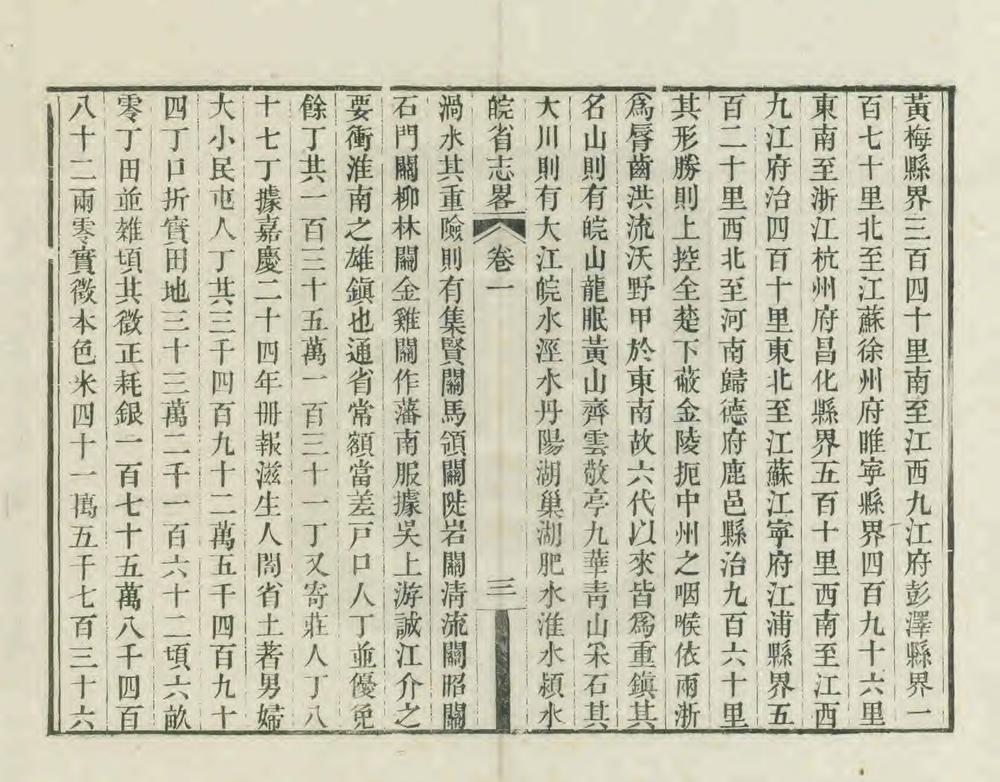 黃梅縣界三百四十里南至江西九江府彭澤縣界一
百七十里北至江蘇徐州府睢寧縣界四百九十六里
東南至浙江杭州府昌化縣界五百十里西南至江西
九江府治四百十里東北至江蘇江寧府江浦縣界五
百二十里西北至河南歸德府鹿邑縣治九百六十里
其形勝則上控全楚下蔽金陵扼中州之咽喉依兩浙
爲脣齒洪流沃野甲於東南故六代以來皆爲重鎮其
名山則有皖山龍眠黃山齊雲敬亭九華靑山采石其
大川則有大江皖水涇水丹陽湖巢湖肥水淮水潁水
皖省志畧 卷一 三
渦水其重險則有集賢關馬領關陡岩關清流關昭關
石門關柳林關金雞關作藩南服據吳上游誠江介之
要衝淮南之雄鎮也通省常額當差戸口人丁並優免
餘丁共一百三十五萬一百三十一丁又寄莊人丁八
十七丁據嘉慶二十四年冊報滋生人閤省土著男婦
大小民屯人丁共三千四百九十二萬五千四百九十
四丁口折實田地三十三萬二千一百六十二頃六畝
零丁田並雜項共徵正耗銀一百七十五萬八千四百
八十二兩零實徵本色米四十一萬五千七百三十六